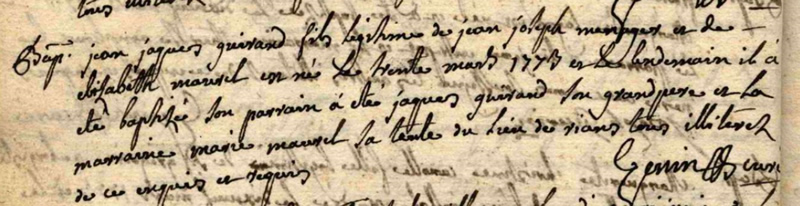 Bap. jean jaques guirand fils legitime de jean joseph menager et de
elisabeth maurel est né le trente mars 1773 et le lendemain il à
eté baptizé son parrain à eté jaques guirand son grandpere et la
marraine marie maurel sa tente du lieu de rians tous illiterez
de ce enquis et requis
curé